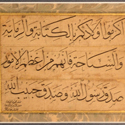 أكرموا أولادكم بالكتابة والرماية
والسباحة فإنهم من أعظم الأمور
صدق رسول الله وصدق حبيب الله